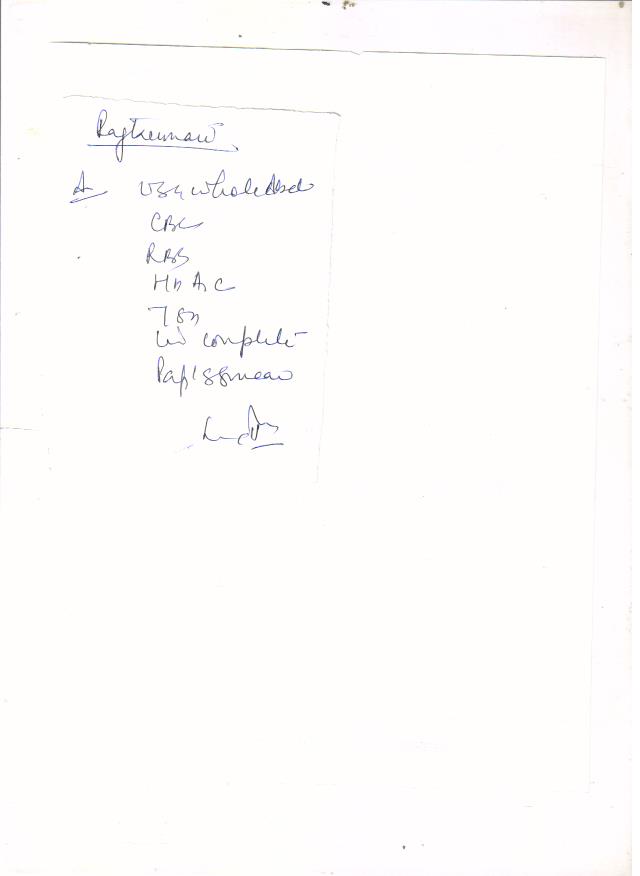 Rajkumari
A USG whole Abd
CBC
RBS
Hb A1C
TSH
LFT complete
Pap's smear